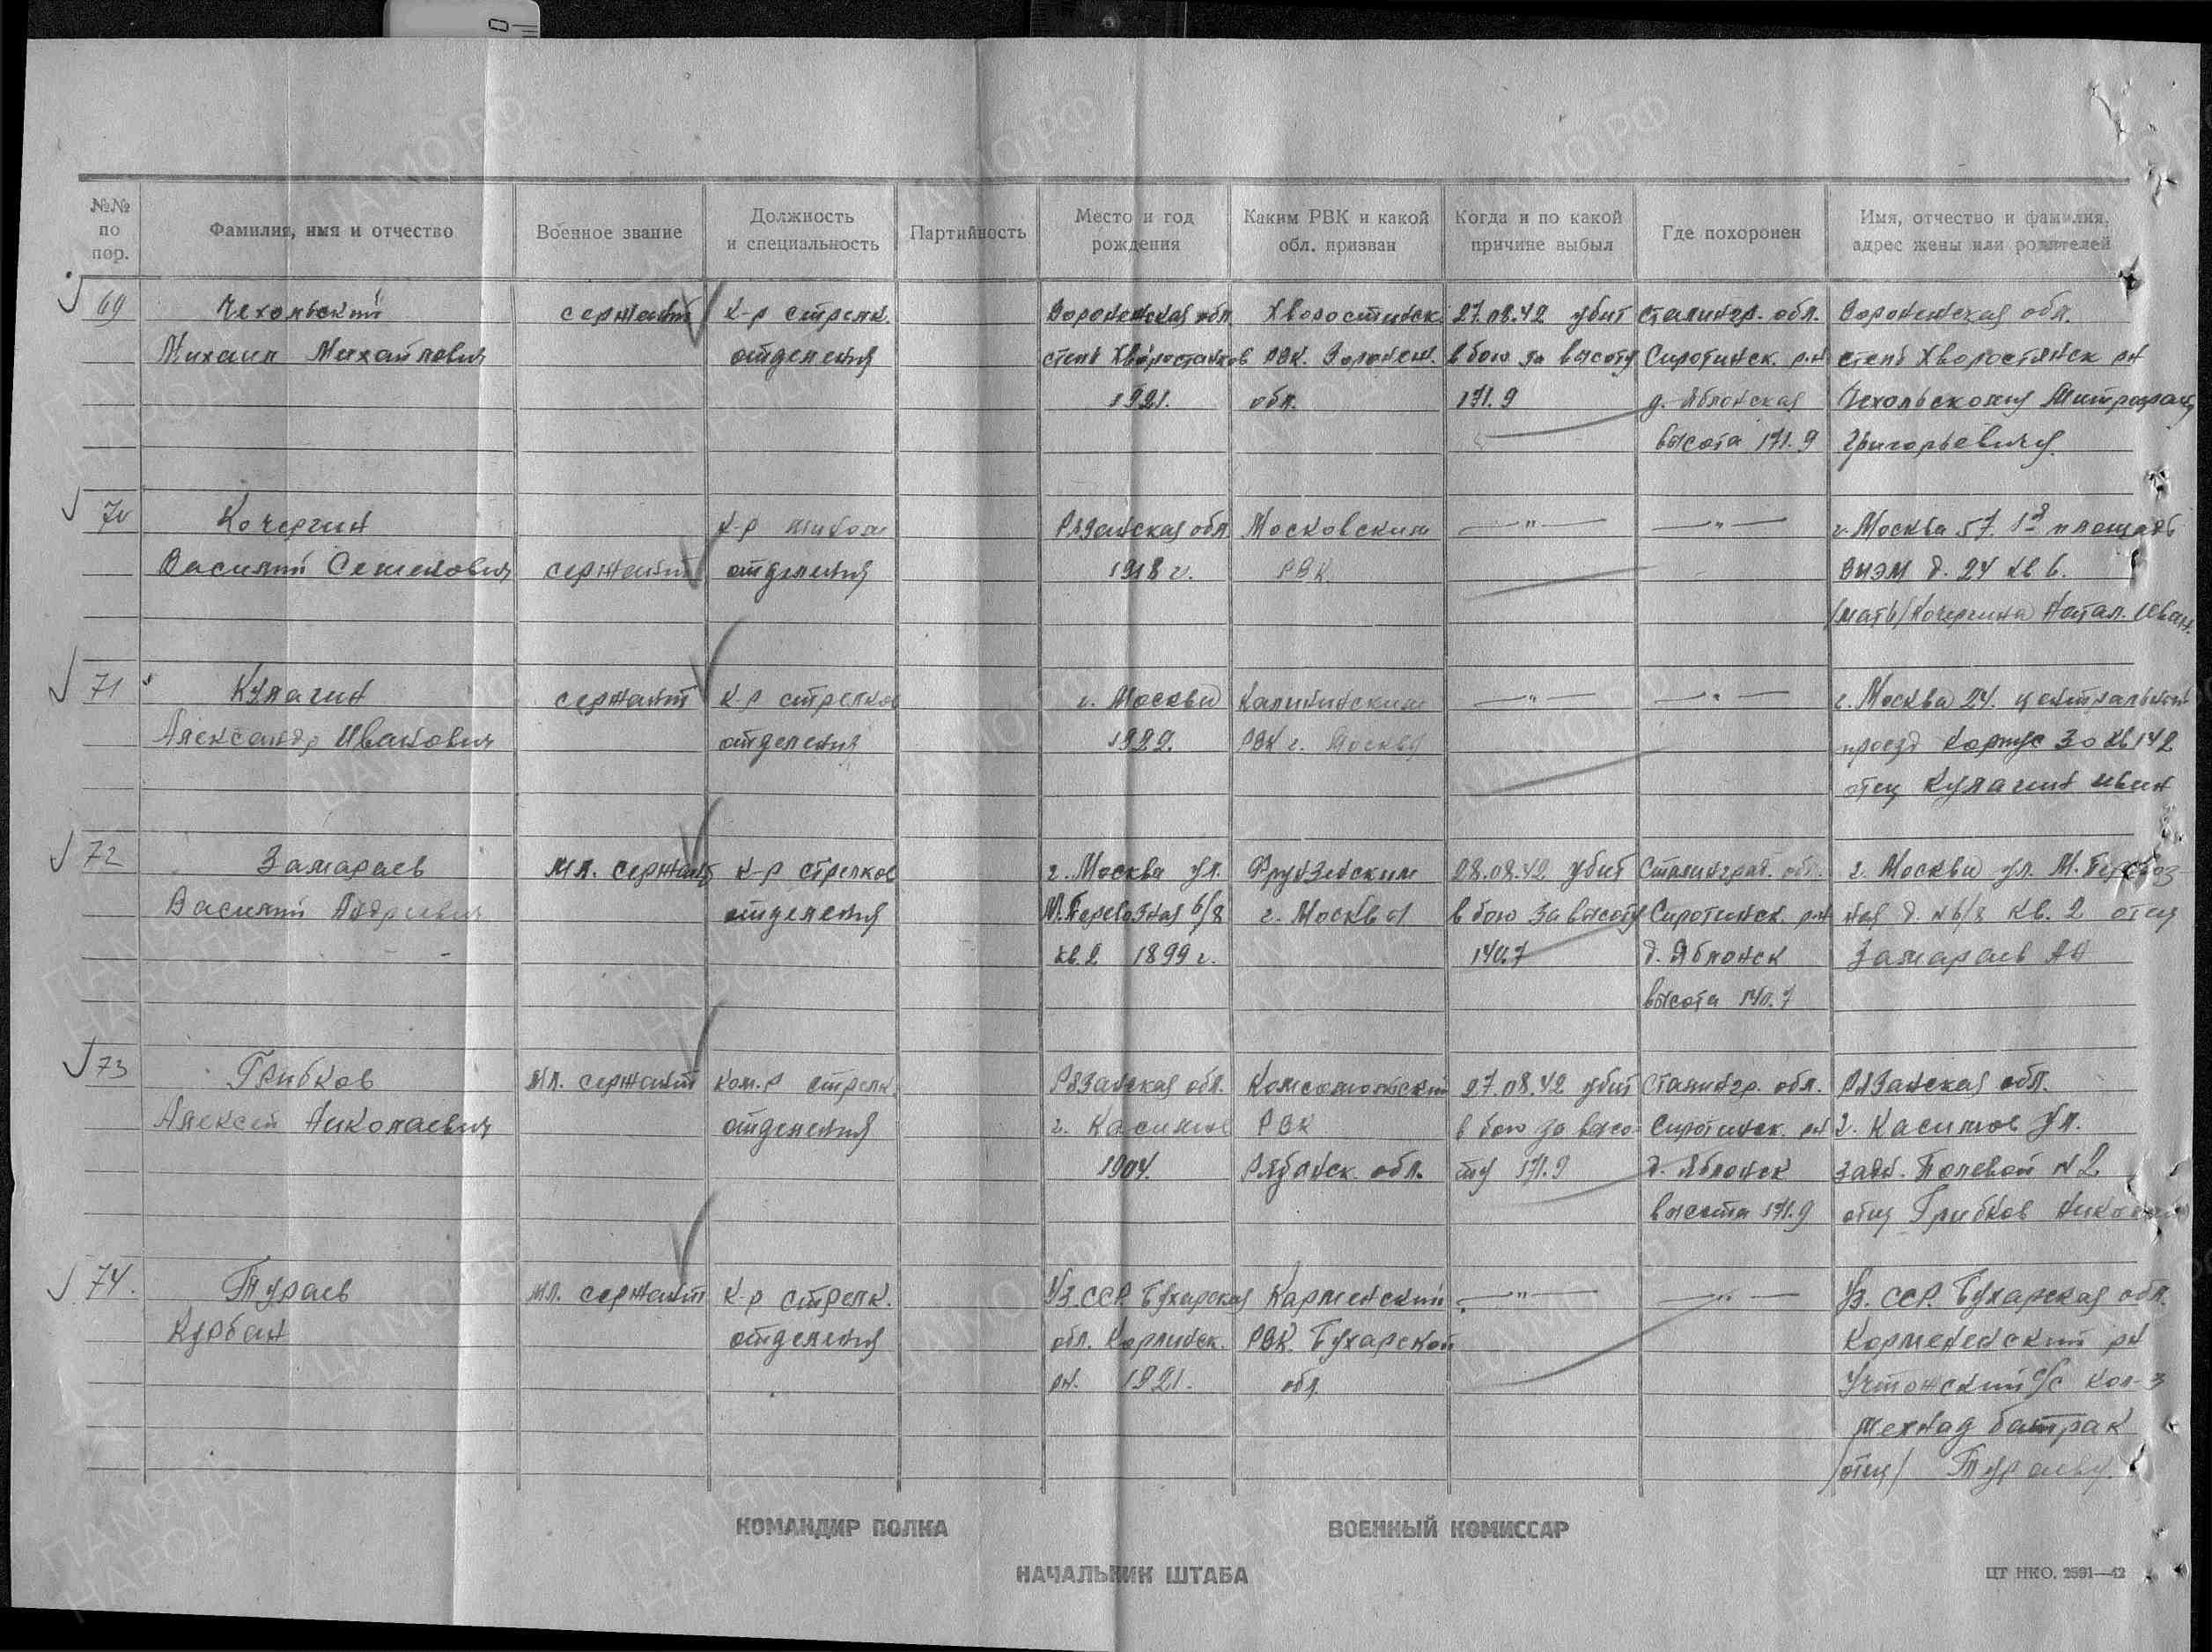 №№ по пор.
Фамилия, имя и отчество
Военное звание
Должность и специальность
Партийность
Место и год рождения
Каким РВК и какой обл. призван
Когда и по какой причине выбыл
Где похоронен
Имя, отчество и фамилия, адрес жены или родителей
69 Чехольский сержант к-р стрелк. Воронежская обл. Хворостинск. 27.08.42 убит Сталингр. обл. Воронежская обл.
Михаил Михайлович отделения РВК. Воронеж. в бою за высоту Сиротинск. р-н Хворостянск рн
1921. обл. 171.9 д. Яблонская
высота 171.9 Григорьевичу.
70 Кочергин к-р Рязанская обл Московским —"— —"— г. Москва 57. площадь
Василий Семенович сержант отделения 1918 г. РВК. ВИЭМ д. 24 кв 6.
/мать/ Кочергина Натал. Иван.
71 Кулагин сержант к-р стрелков г. Москва Калининским —"— —"— г. Москва 24.
Александр Иванович отделения 1922. РВК г. Москвы проезд Корпус 30 кв 142
отец Кулагин Иван
72 Замараев мл. сержант к-р стрелков г. Москва ул. Фрунзенским 28.08.42 убит Сталинград. обл. г. Москва ул. М. Перевоз-
Василий Андреевич отделения М. Перевозная 6/8 г. Москвы в бою за высоту Сиротинск. р-н ная д. № 6/8 кв. 2 отец
кв. 2 1899 г. 140.7 д. Яблонск Замараев АН
высота 140.7
73 Грибков мл. сержант ком.р стрелк. Рязанская обл. Комсомольский 27.08.42 убит Сталингр. обл. Рязанская обл.
Алексей Николаевич отделения г. Касимов РВК в бою за высо- Сиротинск. рн г. Касимов ул.
1904. Рязанск. обл. ту 171.9 д. Яблонск Полевой № 2
высота 171.9 отец Грибков Николай
74. Тураев мл. сержант к-р стрелк. Уз. ССР. Бухарская Карменский —"— —"— Уз. ССР. Бухарская обл.
Курбан отделения обл. РВК. Бухарской рн
рн. 1921. обл. с/с кол-з
батрак
/отец/ Тураеву.
КОМАНДИР ПОЛКА
ВОЕННЫЙ КОМИССАР
НАЧАЛЬНИК ШТАБА
ЦТ НКО. 2591—42
ПАМЯТЬ НАРОДА
ЦАМО.РФ